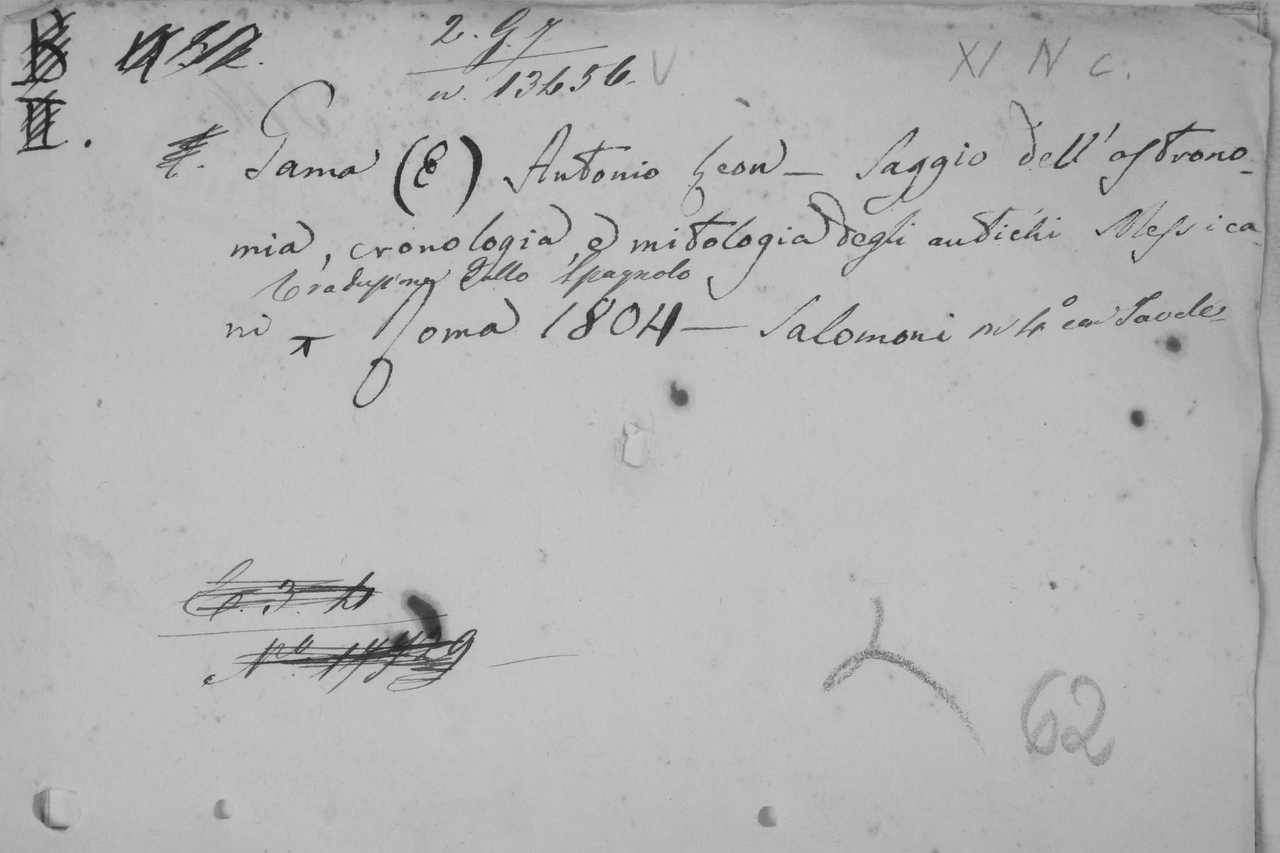 2. G. 7
n. 13656. V
XI N c.
Gama (E) Antonio Leon — Saggio dell'astrono-
mia, cronologia, e mitologia degli antichi Messica
Traduzione dallo Spagnolo
ni Roma 1804 — Salomoni in 4° con Tavole
62